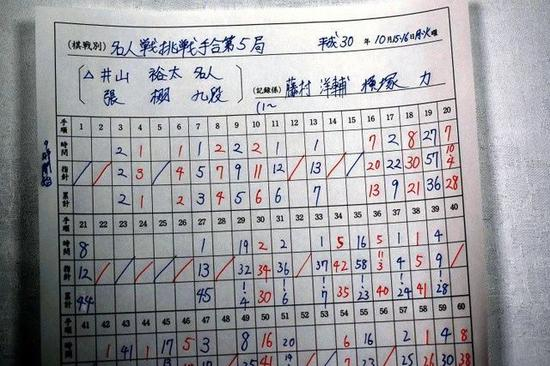 (棋戦別) 名人戦挑戦手合第5局 平成30年10月15・16日月・火曜
△井山 裕太 名人
張 栩 九段
(記録係) 藤村 洋輔 横塚 力
手順 1 2 3 4 5 6 7 8 9 10 11 12 13 14 15 16 17 18 19 20
時間 2 1 1 1 2 2 2 1 1 7 2 8 27 7
指針 2 3 4 5 7 9 11 12 13 20 22 30 57 10 4
累計 2 1 2 7 4 6 6 7 13 9 21 36 28
手順 21 22 23 24 25 26 27 28 29 30 31 32 33 34 35 36 37 38 39 40
時間 8 1 19 2 2 1 5 16 5 1 1 4
指針 12 13 32 34 36 37 42 58 11 3 4 5 9
累計 44 45 1:4 30 1:6 1:7 35 1:23 40 1:24 41 1:28
手順 41 42 43 44 45 46 47 48 49 50 51 52 53 54 55 56 57 58 59 60
時間 1 41 1 17 5 3 8 16 20 6 16 2 1 4 8